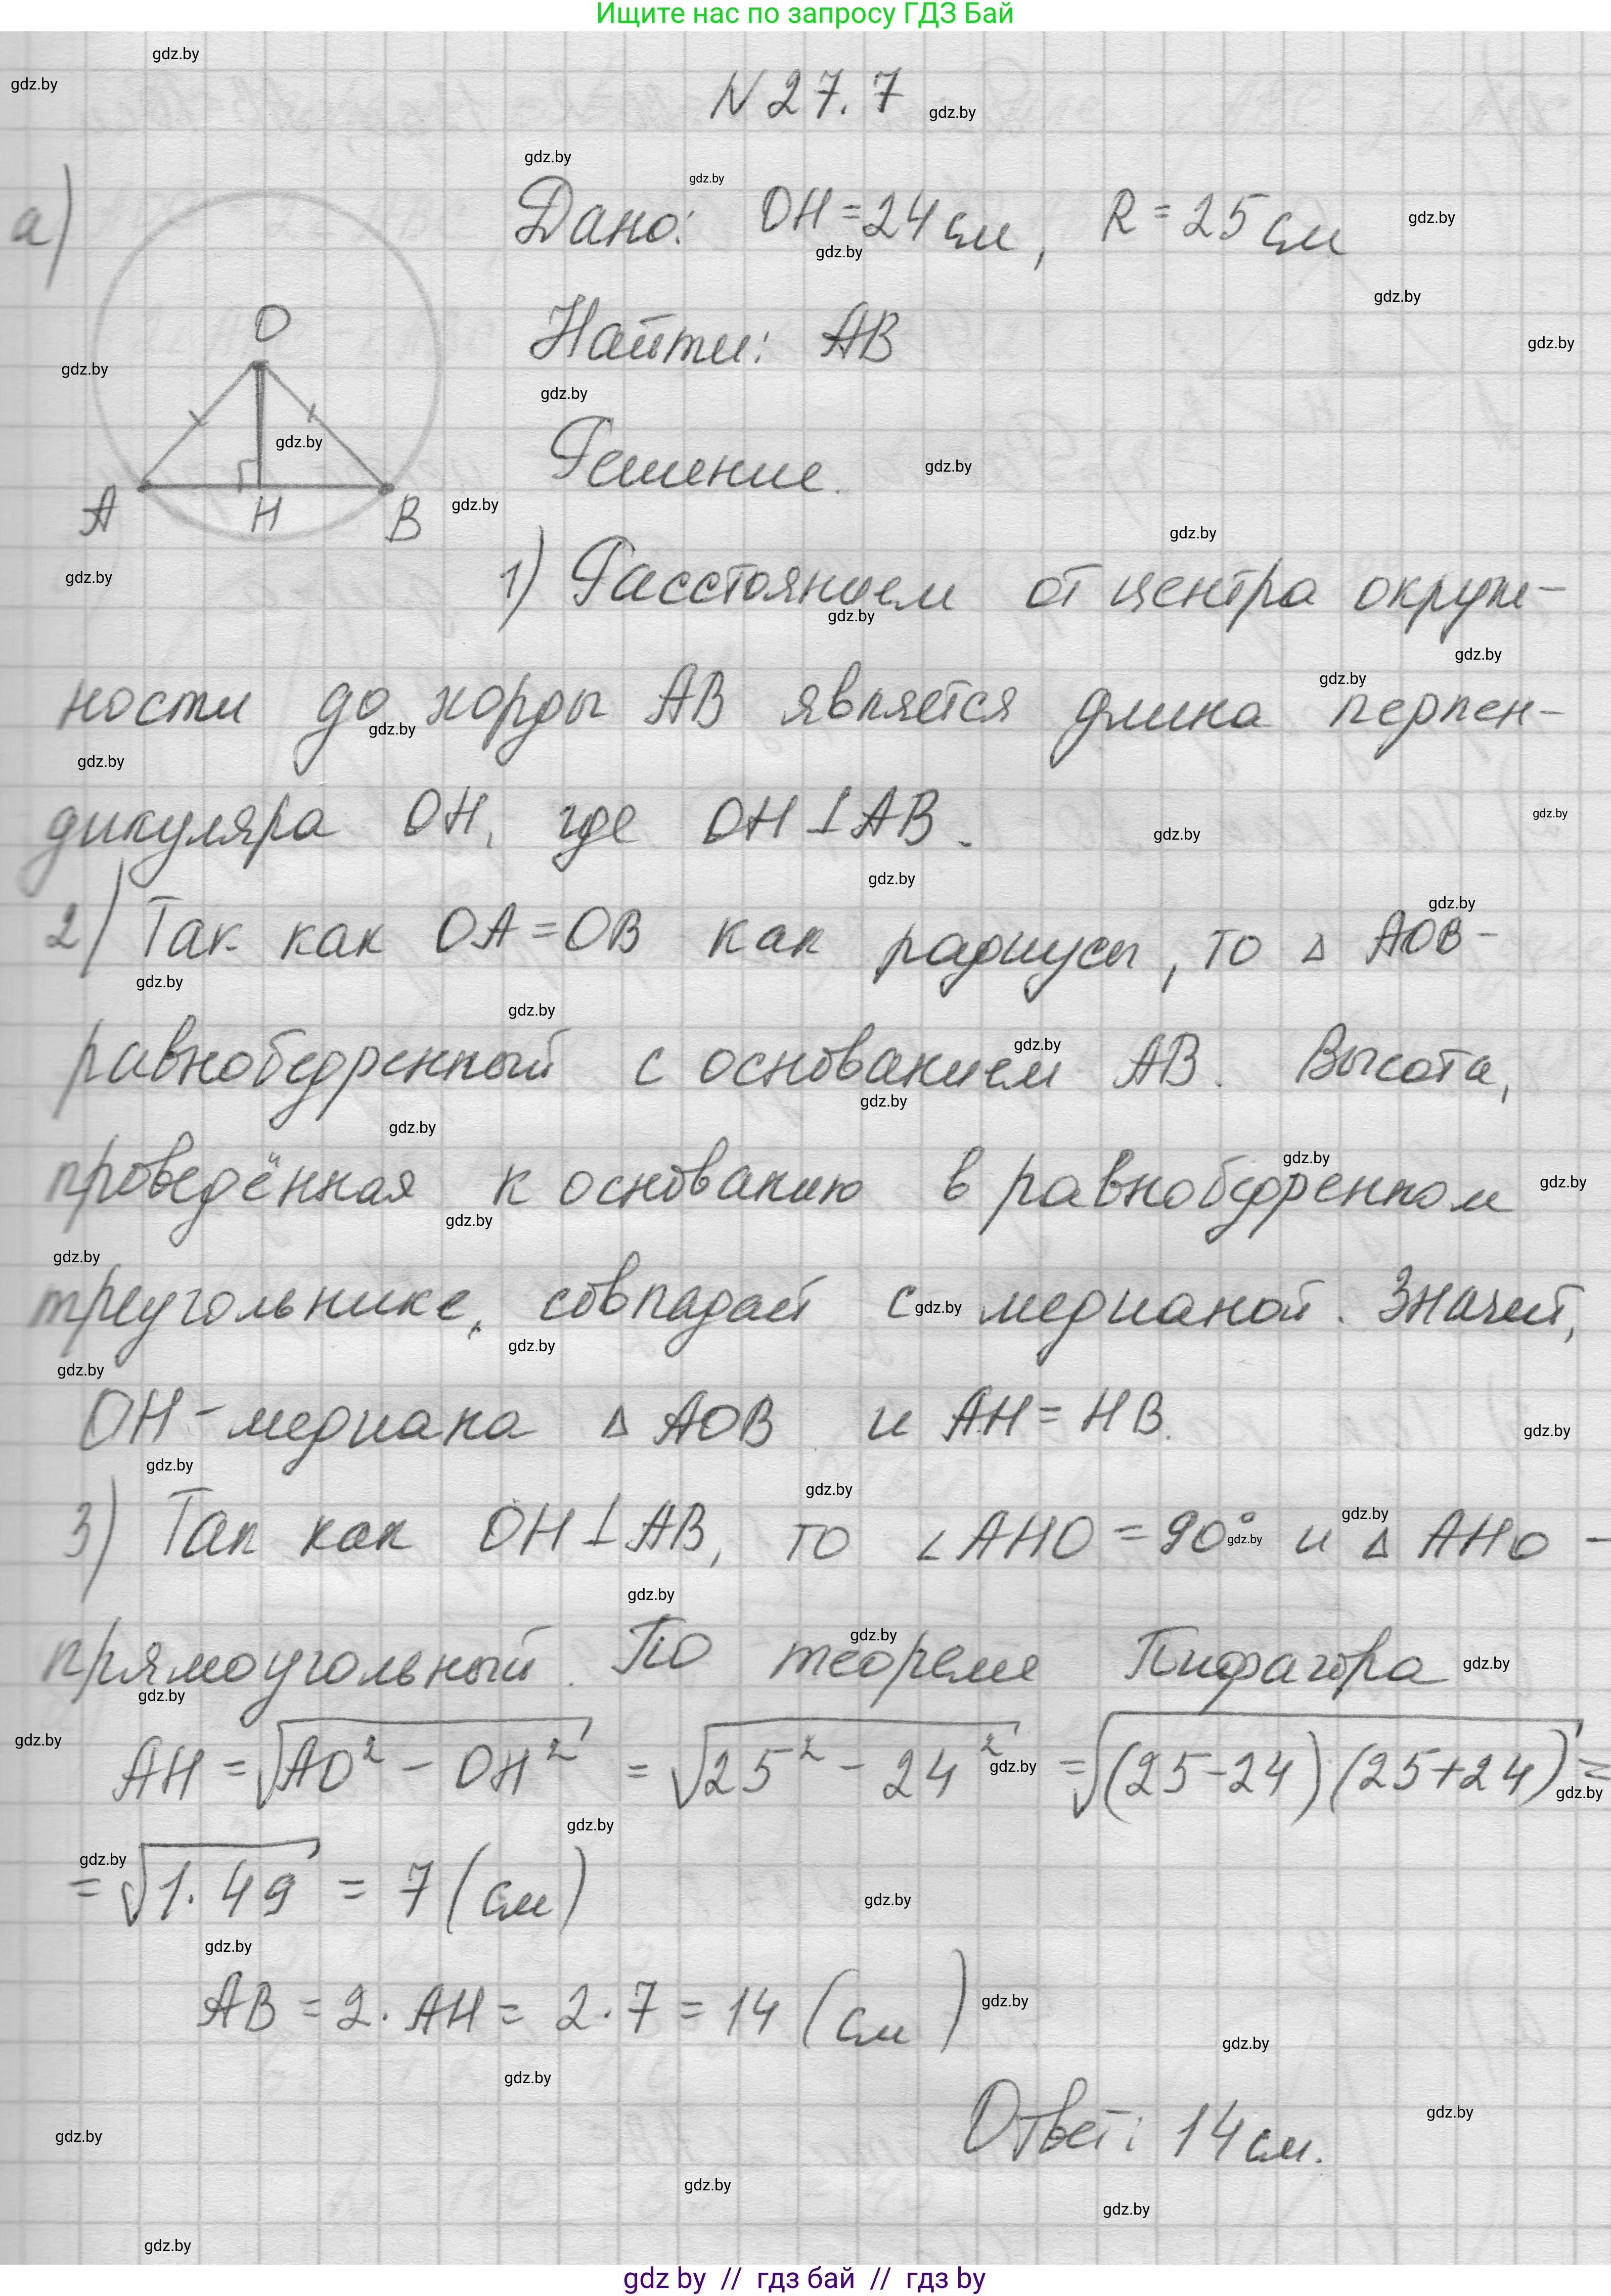 Ищите нас по запросу ГДЗ Бай
N 27.7
а)
Дано: OH = 24 см, R = 25 см
Найти: AB
O
A H B
Решение.
1) Расстоянием от центра окруж-
ности до хорды AB является длина перпен-
дикуляра OH, где OH ⊥ AB.
2) Так как OA = OB как радиусы, то △ AOB -
равнобедренный с основанием AB. Высота,
проведённая к основанию в равнобедренном
треугольнике, совпадает с медианой. Значит,
OH - медиана △ AOB и AH = HB.
3) Так как OH ⊥ AB, то ∠AHO = 90° и △ AHO -
прямоугольный. По теореме Пифагора
AH = √(AO² - OH²) = √(25² - 24²) = √((25-24)(25+24)) =
= √(1·49) = 7 (см)
AB = 2·AH = 2·7 = 14 (см)
Ответ: 14 см.
gdz by // гдз бай // гдз by